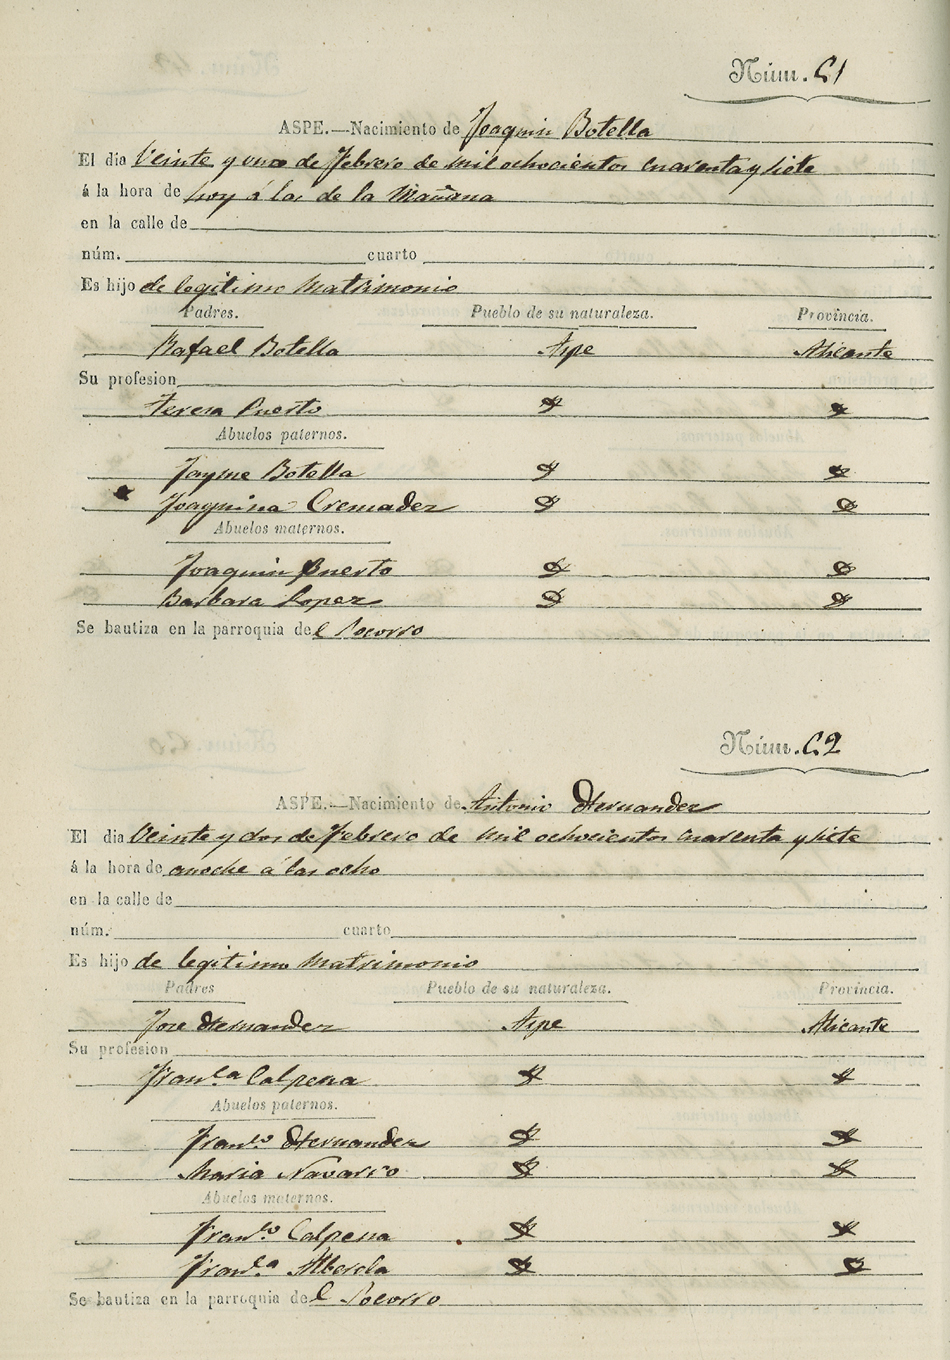 Núm. 61
ASPE.—Nacimiento de Joaquin Botella
El dia Veinte y uno de Febrero de mil ochocientos cuarenta y siete
á la hora de hoy á las de la Mañana
en la calle de
núm. cuarto
Es hijo de legitimo Matrimonio
Padres. Pueblo de su naturaleza. Provincia.
Rafael Botella Aspe Alicante
Su profesion
Teresa Puerto
Abuelos paternos.
Jayme Botella
Joaquina Cremadez
Abuelos maternos.
Joaquin Puerto
Barbara Lopez
Se bautiza en la parroquia del Socorro
Núm. 62
ASPE.—Nacimiento de Antonio Hernandez
El dia Veinte y dos de Febrero de mil ochocientos cuarenta y siete
á la hora de anoche á las ocho
en la calle de
núm. cuarto
Es hijo de legitimo Matrimonio
Padres Pueblo de su naturaleza. Provincia.
Jose Hernandez Aspe Alicante
Su profesion
Fran.ca Calpena
Abuelos paternos.
Fran.co Hernandez
Maria Navarro
Abuelos maternos.
Fran.co Calpena
Fran.ca Alberola
Se bautiza en la parroquia del Socorro